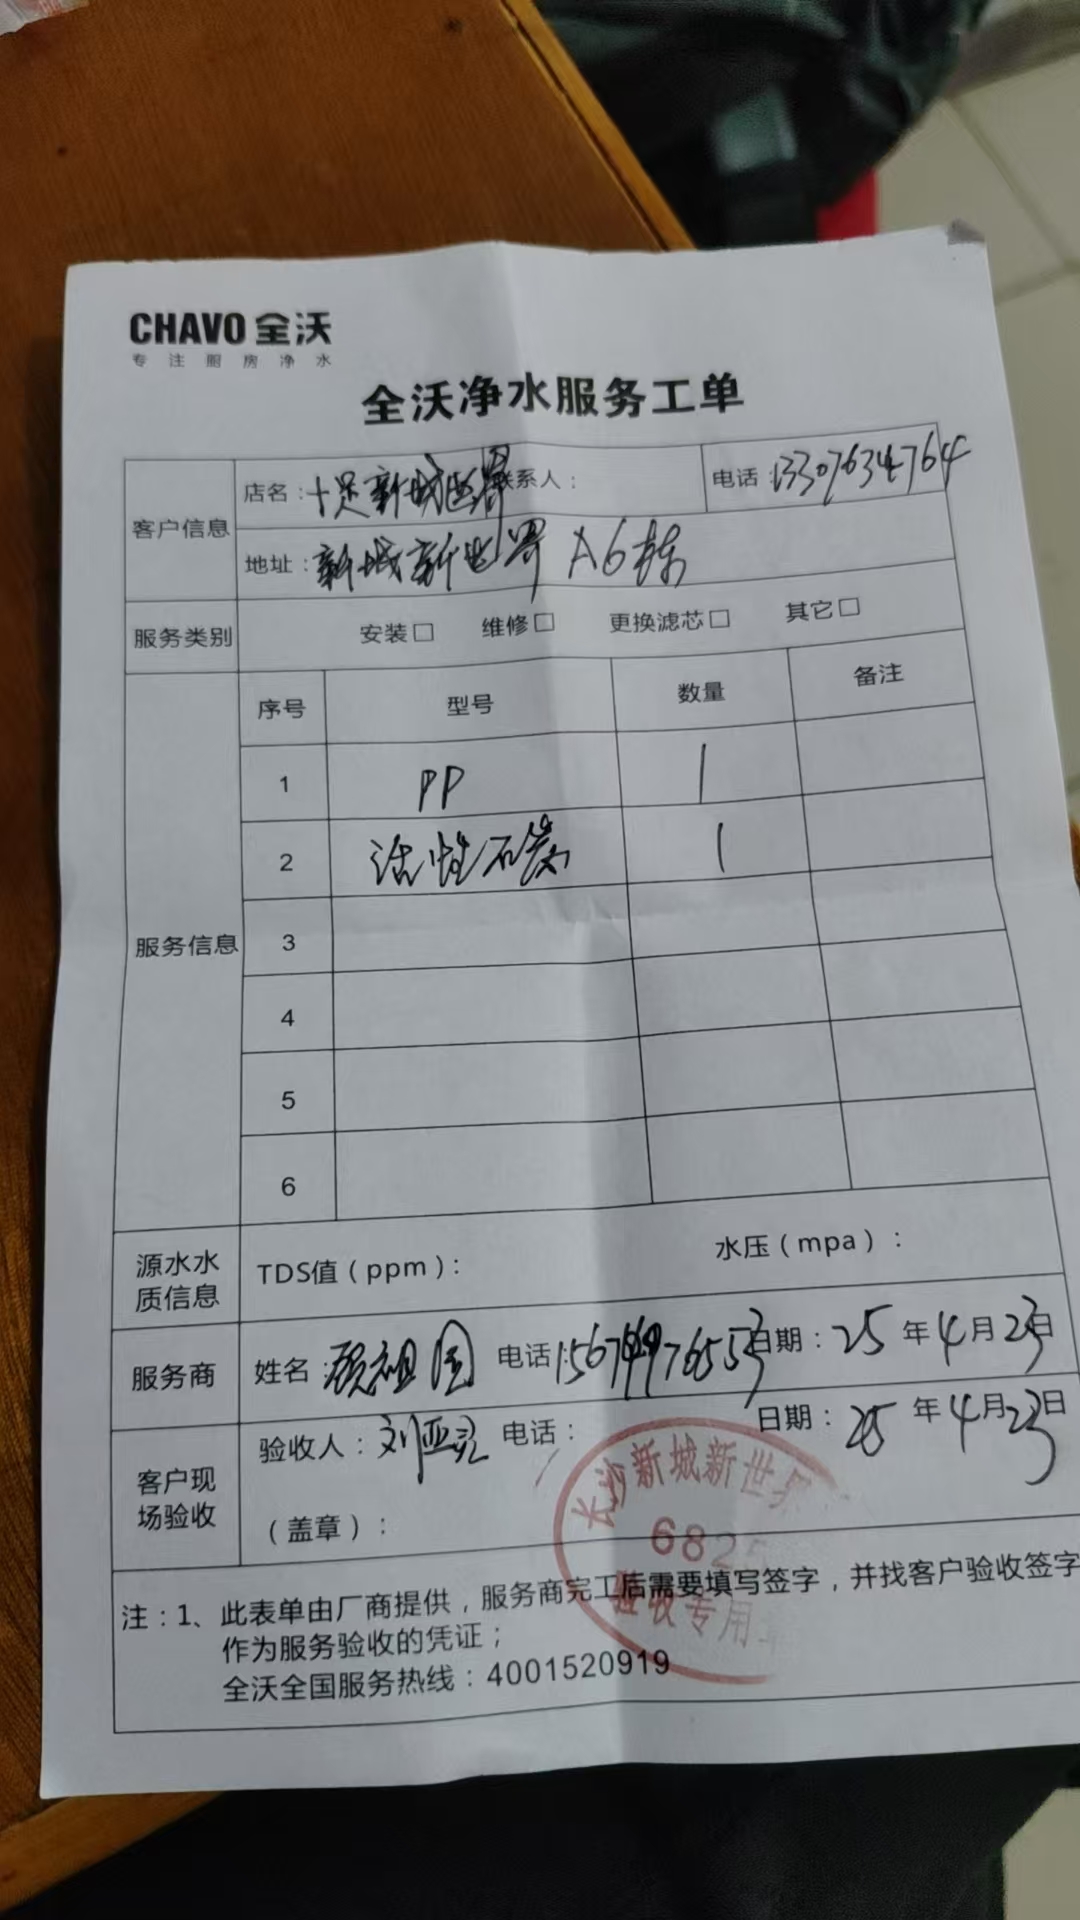 CHAVO 全沃
专注厨房净水
全沃净水服务工单
客户信息 店名：十足新城世界 联系人： 电话：13307634764
地址：新城新世界 A6栋
服务类别 安装□ 维修□ 更换滤芯□ 其它□
服务信息 序号 型号 数量 备注
1 PP 1
2 活性石炭 1
3
4
5
6
源水水质信息 TDS值（ppm）： 水压（mpa）：
服务商 姓名：祖国 电话： 日期：25 年 4 月 23 日
客户现场验收 验收人：刘亚 电话： 日期：25 年 4 月 23 日
（盖章）：
长沙新城新世界
6825
验收专用
注：1、此表单由厂商提供，服务商完工后需要填写签字，并找客户验收签字
作为服务验收的凭证；
全沃全国服务热线：4001520919